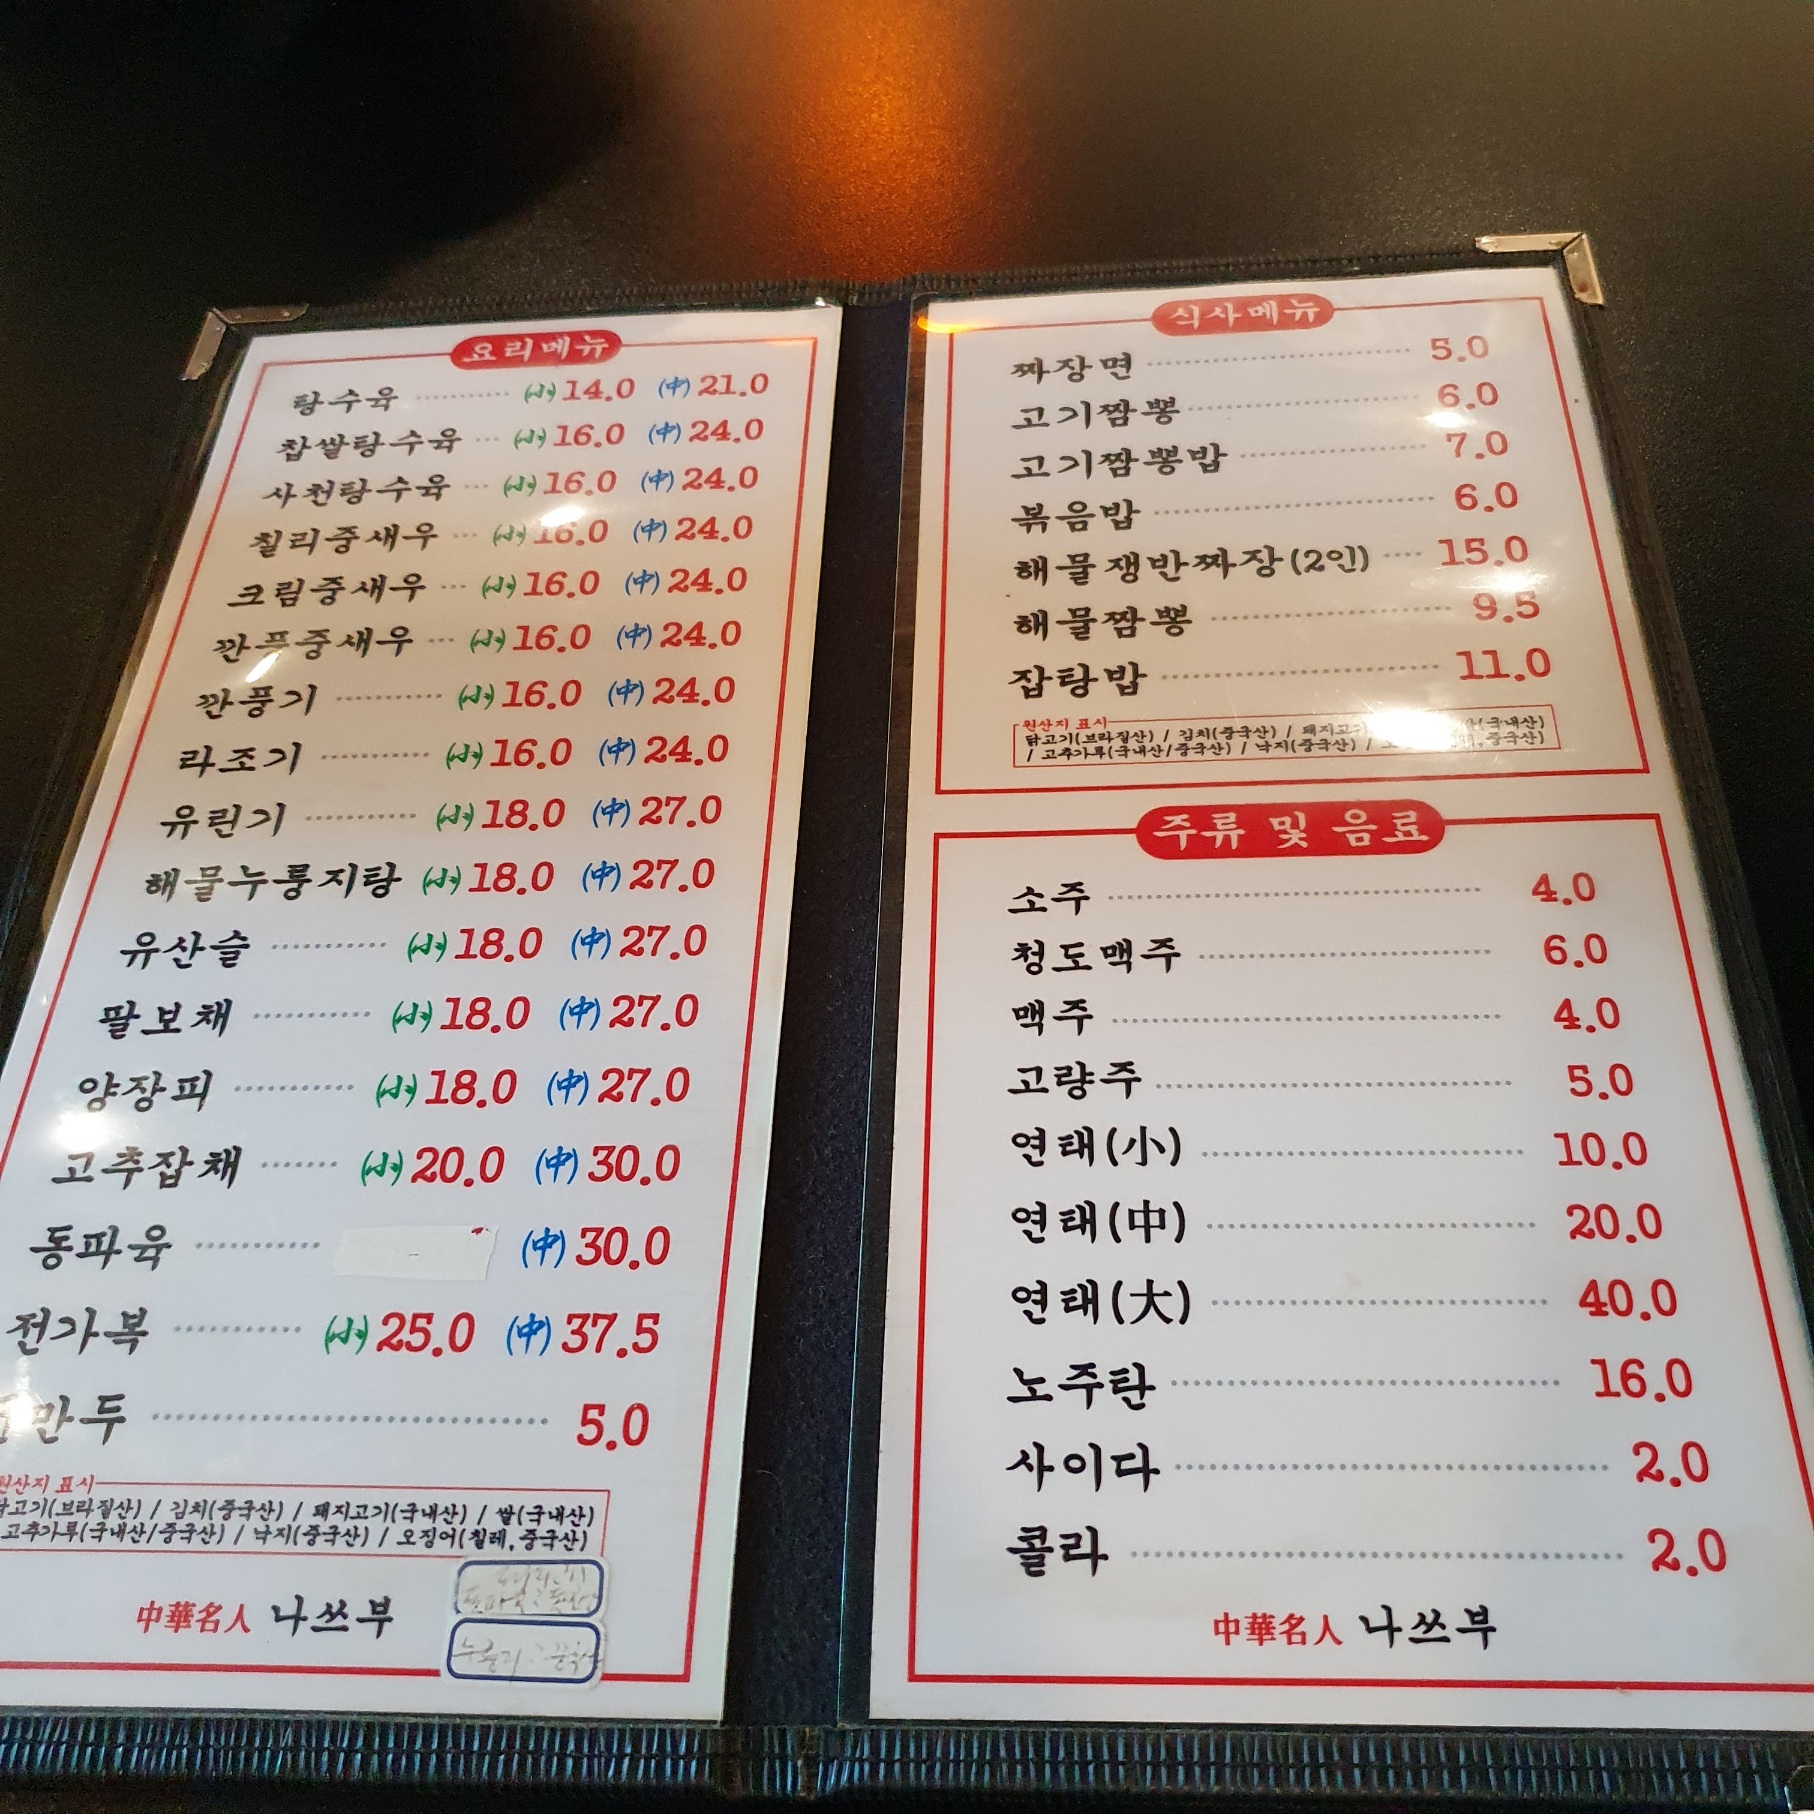 요리메뉴
탕수육 (小) 14.0 (中) 21.0
찹쌀탕수육 (小) 16.0 (中) 24.0
사천탕수육 (小) 16.0 (中) 24.0
칠리중새우 (小) 16.0 (中) 24.0
크림중새우 (小) 16.0 (中) 24.0
깐푸중새우 (小) 16.0 (中) 24.0
깐풍기 (小) 16.0 (中) 24.0
라조기 (小) 16.0 (中) 24.0
유린기 (小) 18.0 (中) 27.0
해물누룽지탕 (小) 18.0 (中) 27.0
유산슬 (小) 18.0 (中) 27.0
팔보채 (小) 18.0 (中) 27.0
양장피 (小) 18.0 (中) 27.0
고추잡채 (小) 20.0 (中) 30.0
동파육 (中) 30.0
전가복 (小) 25.0 (中) 37.5
만두 5.0
원산지 표시
닭고기(브라질산) / 김치(중국산) / 돼지고기(국내산) / 쌀(국내산)
고추가루(국내산/중국산) / 낙지(중국산) / 오징어(칠레,중국산)
中華名人 나쓰부
식사메뉴
짜장면 5.0
고기짬뽕 6.0
고기짬뽕밥 7.0
볶음밥 6.0
해물쟁반짜장(2인) 15.0
해물짬뽕 9.5
잡탕밥 11.0
원산지 표시
닭고기(브라질산) / 김치(중국산) / 돼지고기 (국내산)
/ 고추가루(국내산/중국산) / 낙지(중국산) / 중국산)
주류 및 음료
소주 4.0
청도맥주 6.0
맥주 4.0
고량주 5.0
연태(小) 10.0
연태(中) 20.0
연태(大) 40.0
노주탄 16.0
사이다 2.0
콜라 2.0
中華名人 나쓰부